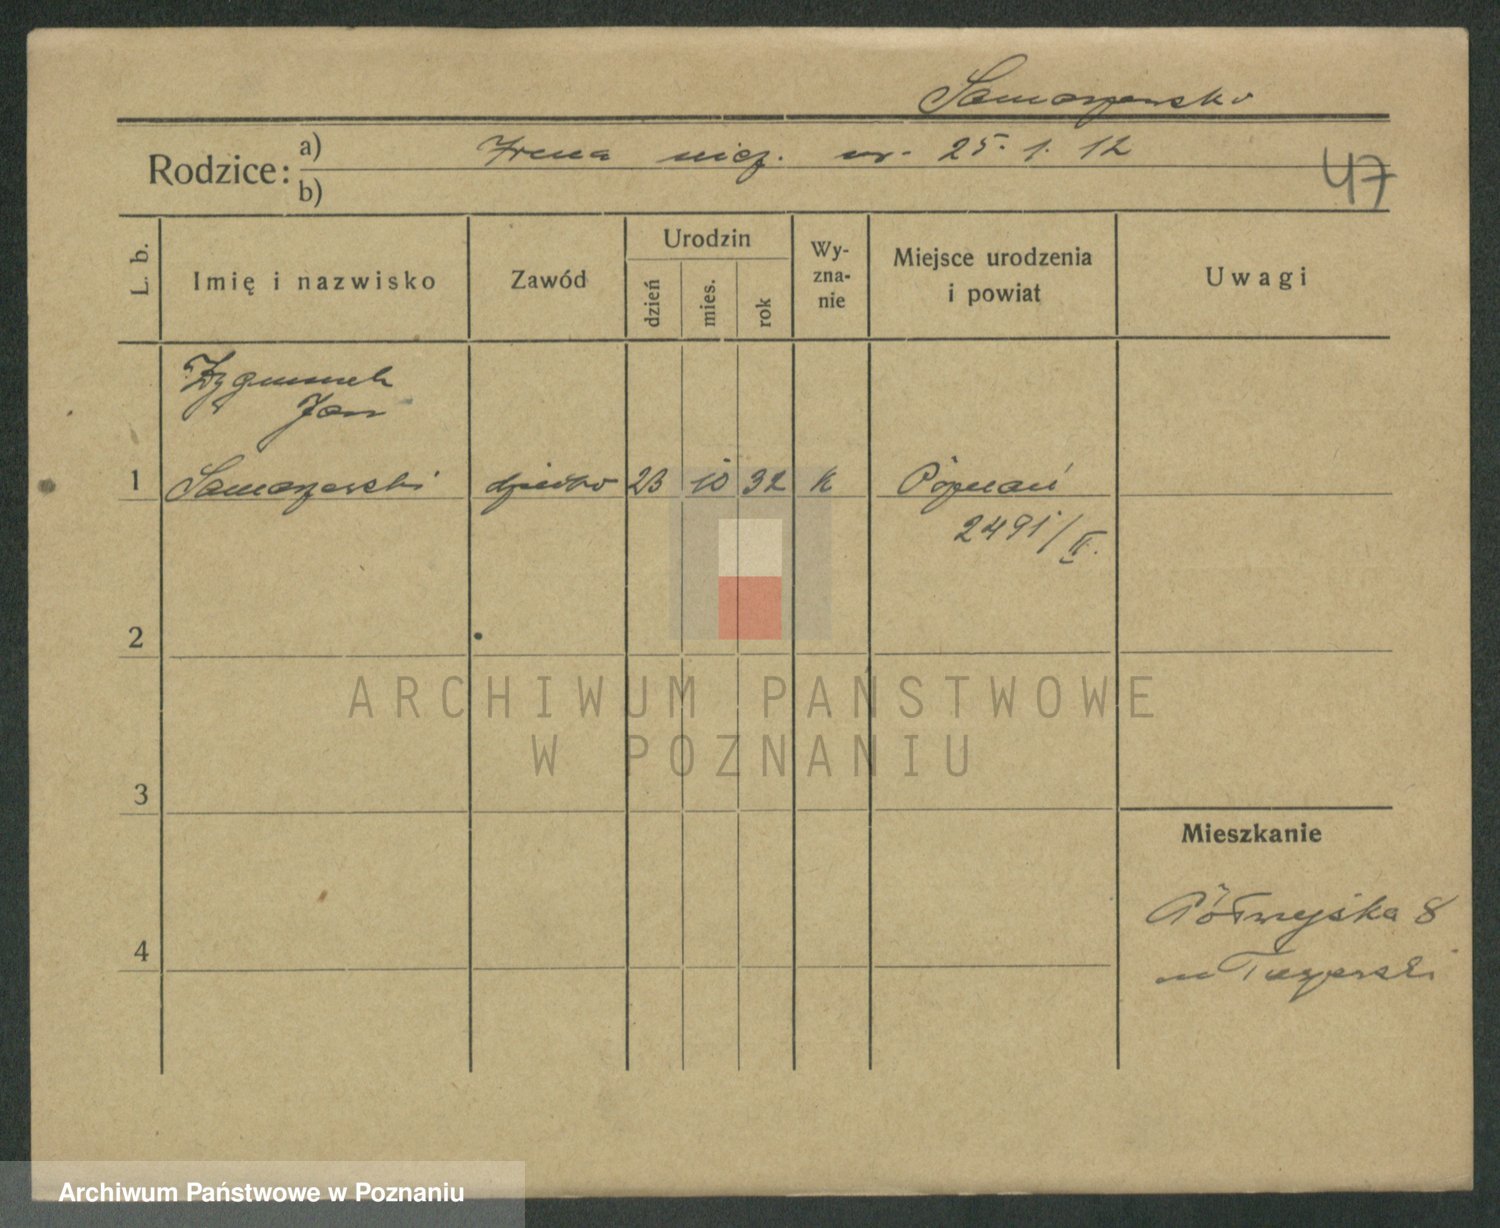 Samarzewska
Rodzice: a) Irena niez. ur. 25. 1. 12
b)
47
L. b. Imię i nazwisko Zawód Urodzin dzień mies. rok Wy-zna-nie Miejsce urodzenia i powiat Uwagi
Zygmunt
Jan
1 Samarzewski dziecko 23 10 32 k Poznań
2491/II.
2
ARCHIWUM PAŃSTWOWE
W POZNANIU
3
Mieszkanie
Półwiejska 8
4
Archiwum Państwowe w Poznaniu